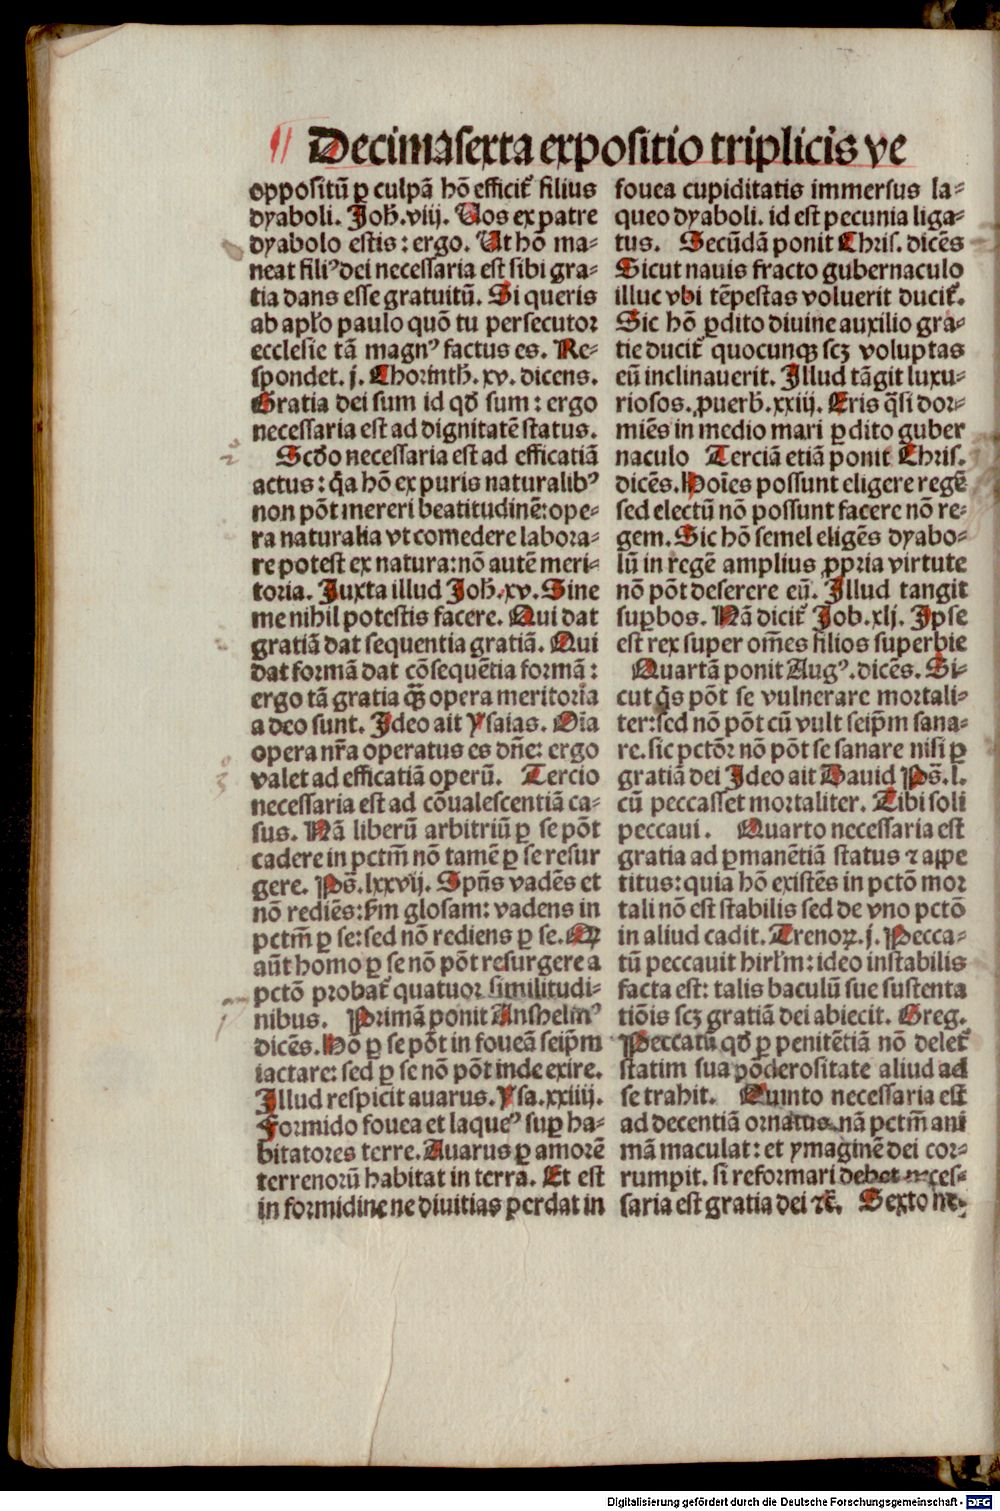 Decimasexta expositio triplicis ve
oppositũ ꝑ culpã hõ efficit᷑ filius
dyaboli. Joh̃.viij. Uos ex patre
dyabolo estis: ergo. Ut hõ ma-
neat filiꝰ dei necessaria est sibi gra-
tia dans esse gratuitũ. Si queris
ab apl̃o paulo quõ tu persecutor
ecclesie tã magnꝰ factus es. Re-
spondet. j. Chorinth̃. xv. dicens.
Gratia dei sum id qð sum: ergo
necessaria est ad dignitatẽ status.
Scðo necessaria est ad efficatiã
actus: q̃a hõ ex puris naturalibꝰ
non põt mereri beatitudinẽ: ope-
ra naturalia vt comedere labora-
re potest ex natura: nõ autẽ meri-
toria. Juxta illud Joh̃. xv. Sine
me nihil potestis facere. Qui dat
gratiã dat sequentia gratiã. Qui
dat formã dat cõsequẽtia formã:
ergo tã gratia q̃ꝫ opera meritoria
a deo sunt. Jdeo ait Ysaias. Oĩa
opera nr̃a operatus es dñe: ergo
valet ad efficatiã operũ. Tercio
necessaria est ad cõualescentiã ca-
sus. Nã liberũ arbitriũ ꝑ se põt
cadere in pctm̃ nõ tamẽ ꝑ se resur
gere. Ps̃. lxxvij. Spũs vadẽs et
nõ rediẽs: ẜm glosam: vadens in
pctm̃ ꝑ se: sed nõ rediens ꝑ se. Qꝫ
aũt homo ꝑ se nõ põt resurgere a
pctõ probat᷑ quatuor similitudi-
nibus. Primã ponit Anshelmꝰ
dicẽs. Hõ ꝑ se põt in foueã seip̃m
iactare: sed ꝑ se nõ põt inde exire.
Jllud respicit auarus. Ysa. xxiiij.
Formido fouea et laqueꝰ suꝑ ha-
bitatores terre. Auarus ꝑ amorẽ
terrenorũ habitat in terra. Et est
in formidine ne diuitias perdat in
fouea cupiditatis immersus la-
queo dyaboli. id est pecunia liga-
tus. Secũdã ponit Chris. dicẽs
Sicut nauis fracto gubernaculo
illuc vbi tẽpestas voluerit ducit᷑.
Sic hõ ꝑdito diuine auxilio gra-
tie ducit᷑ quocunqꝫ scꝫ voluptas
eũ inclinauerit. Jllud tãgit luxu-
riosos. ꝓuerb̃. xxiij. Eris q̃si dor-
miẽs in medio mari ꝑdito guber
naculo Terciã etiã ponit Chris.
dicẽs. Hoĩes possunt eligere regẽ
sed electũ nõ possunt facere nõ re-
gem. Sic hõ semel eligẽs dyabo-
lũ in regẽ amplius ꝓpria virtute
nõ põt deserere eũ. Jllud tangit
suꝑbos. Nã dicit᷑ Job. xlj. Jpse
est rex super om̃es filios superbie
Quartã ponit Augꝰ. dicẽs. Si-
cut q̃s põt se vulnerare mortali-
ter: sed nõ põt cũ vult seip̃m sana-
re. sic pctõr nõ põt se sanare nisi ꝑ
gratiã dei Jdeo ait Dauid Ps̃. l.
cũ peccasset mortaliter. Tibi soli
peccaui. Quarto necessaria est
gratia ad ꝑmanẽtiã status ⁊ appe
titus: quia hõ existẽs in pctõ mor
tali nõ est stabilis sed de vno pctõ
in aliud cadit. Trenoꝝ. j. Pecca-
tũ peccauit hirl̃m: ideo instabilis
facta est: talis baculũ sue sustenta
tiõis scꝫ gratiã dei abiecit. Greg.
Peccatũ qð ꝑ penitẽtiã nõ delet᷑
statim sua põderositate aliud ad
se trahit. Quinto necessaria est
ad decentiã ornatus. nã pctm̃ ani
mã maculat: et ymaginẽ dei cor-
rumpit. si reformari debet neces-
saria est gratia dei ⁊c̃. Sexto ne-
Digitalisierung gefördert durch die Deutsche Forschungsgemeinschaft - DFG